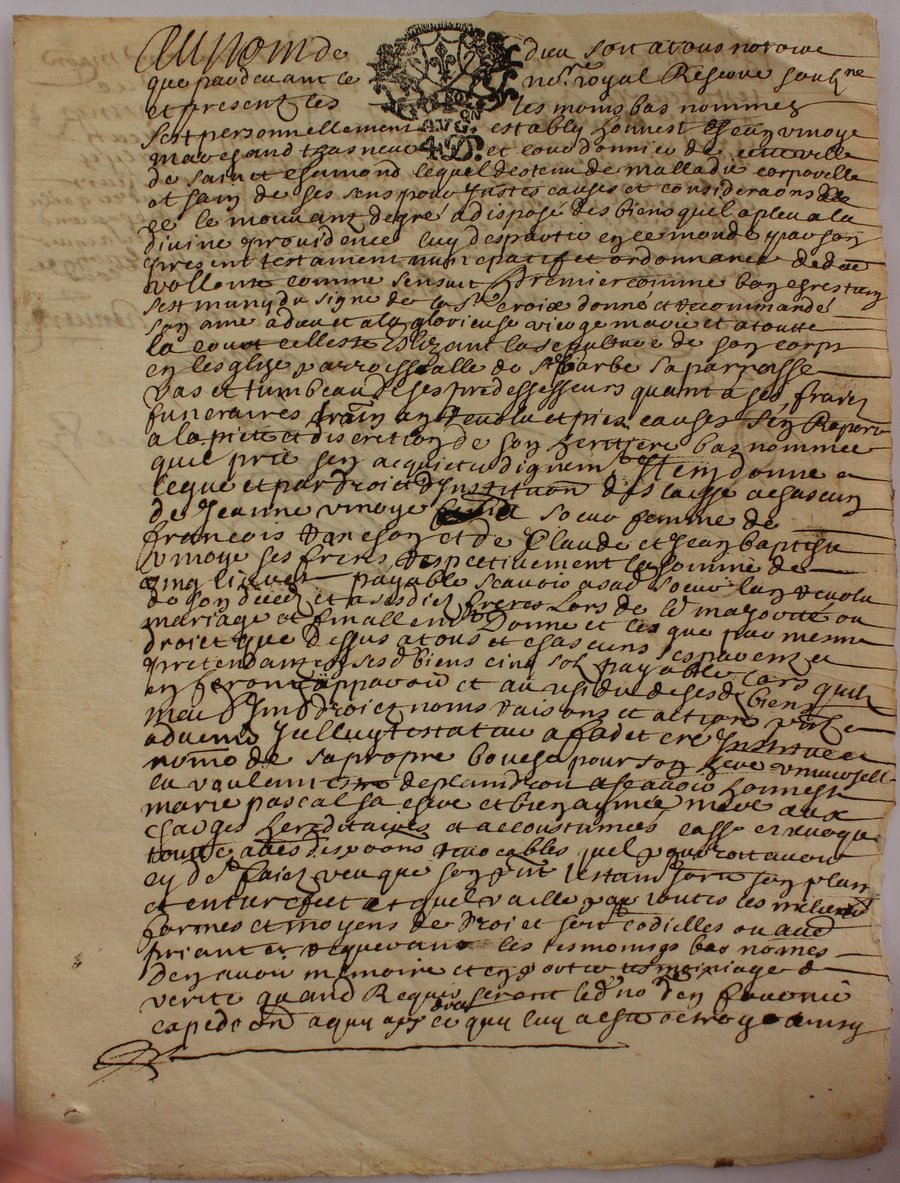 Au nom de dieu soit a tous notoire
que pardevant le no.re royal Reservé soubne
et present les tesmoins bas nommez
sest personnellement estably honnest Jean vinoye
marchand et cordonnier de cette ville
de sainct Chamond lequel destenu de malladie corporelle
et sain de ses sens pour justes causes et consideraons
le mouvant de gré a disposé des biens quil a pleu a la
divine providence luy despartir en ce monde par son
present testament nuncupatif et ordonnance de de.re
vollonte comme sensuit Premier comme bon chrestien
sest muny du signe de la Ste croix donné et recommandé
son ame a dieu et a la glorieuse vierge marie et a toutte
la court celleste Eslizant la sepulture de son corps
en lesglise parroissialle de Ste barbe sa parroisse
vas et tumbeau de ses predessesseurs quant a ses fraiz
funeraires an revolu et pies causes sen Raporte
a la pieté et discretion de son heritiere bas nommée
quil prie sen acquicter dignem.t Item donne
legue et par droict dInstitution deslaisse a chascun
de Jeanne vinoye sa soeur femme de
francois et de Claude et Jean baptiste
vinoye ses freres respectivement la somme de
cinq livres payable scavoir a sad soeur lan revolu
de son decedz et a sesdictz freres Lors de le majorité ou
mariage et finallem.t donne et legue par mesme
droict que dessus a tous et chascuns ses parens
pretendant en ses d biens cinq solz payable Lors quilz
en feront apparoir et au residu de ses d biens
meu droictz noms raisons et actions p.nts
advenir Icelluy testateur a faict et cree Institue et
nommé de sa propre bouche pour son here universelle
la voulant estre de plain droict a scavoir honneste
marie pascal sa chere et bien aymée mere aux
charges hereditaires et accoustumées casse et revoque
toutte autres disp.ons revocables quil pourroit avoir
cy d.t faict veu que son p.nt testam.t sorte son plain
et entier effect et quil vaille par toutes les meilleures
formes et moyens de droict soit codicilles ou autre
priant et requerant les tesmoings bas nommes
den avoir memoire et en porter tesmoigniage de
verité quand Requis seront led no.re den fournir
expedition a quy apar.dra ce quy luy a esté octroye ainsy